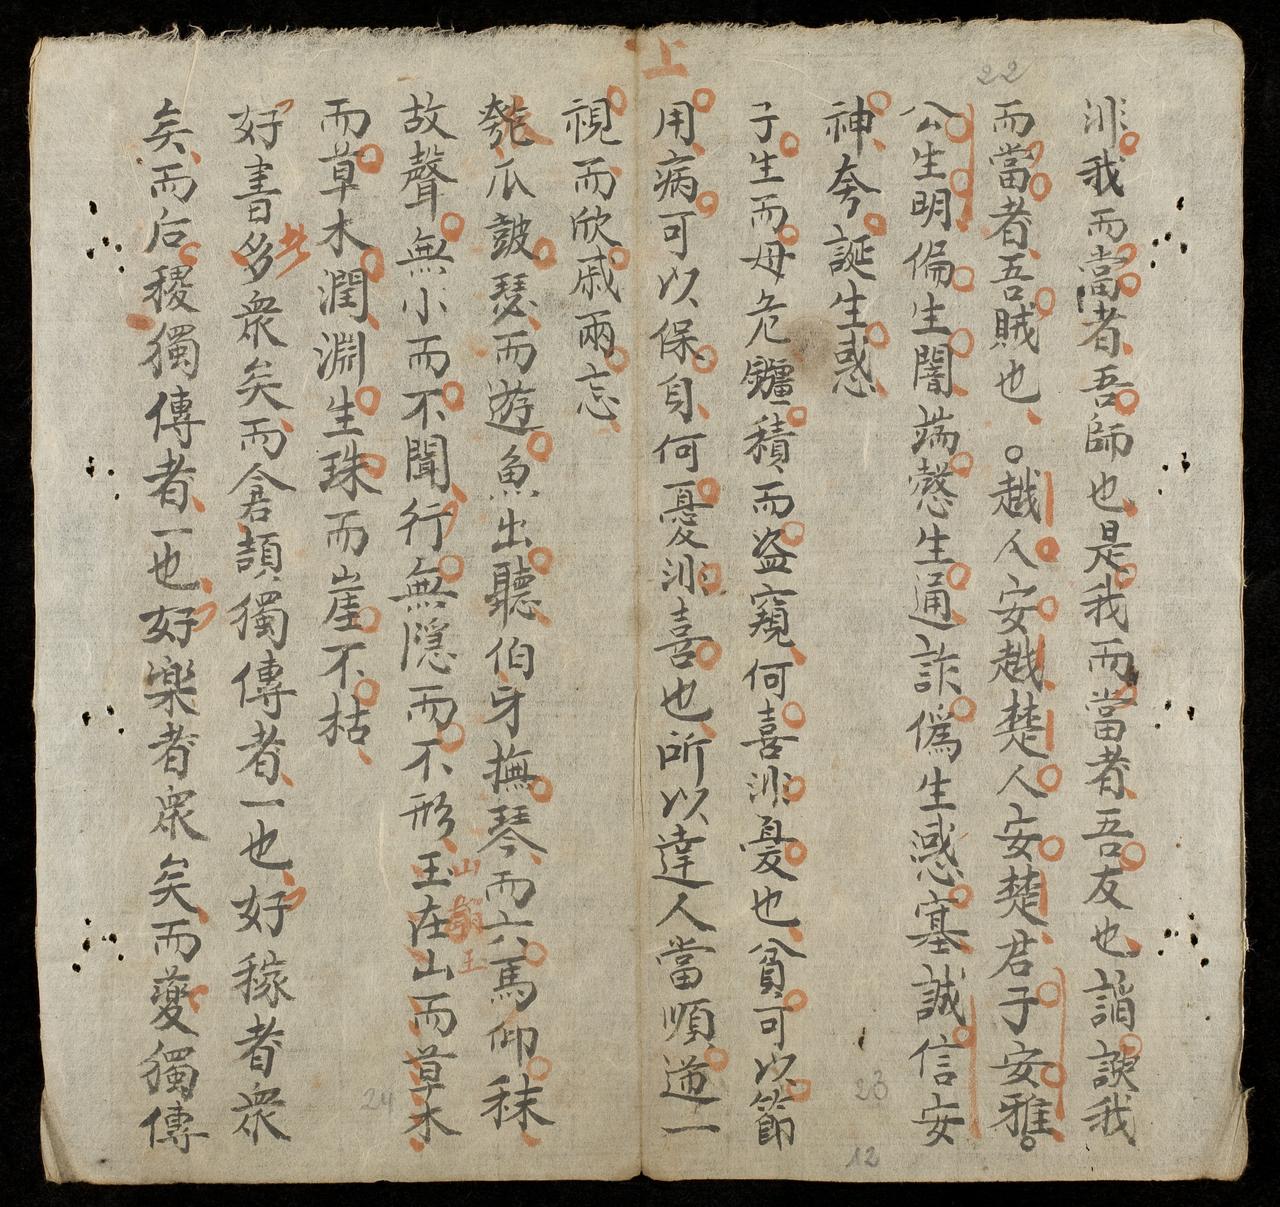 非我而當者吾師也是我而當者吾友也諂諛我
而當者吾賊也○越人安越楚人安楚君子安雅
公生明偏生闇端愨生通詐偽生惑塞誠信安
神夸誕生惑
子生而母危鏹積而盗窺何喜非憂也貧可以節
用病可以保身何憂非喜也所以達人當順逆一
視而欣戚兩忘
匏瓜皷瑟而遊魚出聽伯牙撫琴而六馬仰秣
故聲無小而不聞行無隠而不形玉在山而草木
而草木潤淵生珠而崖不枯
好書多衆矣而倉頡獨傳者一也好稼者衆
矣而后稷獨傳者一也好樂者衆矣而夔獨傳
上
老
山
玉
22
23
24
12